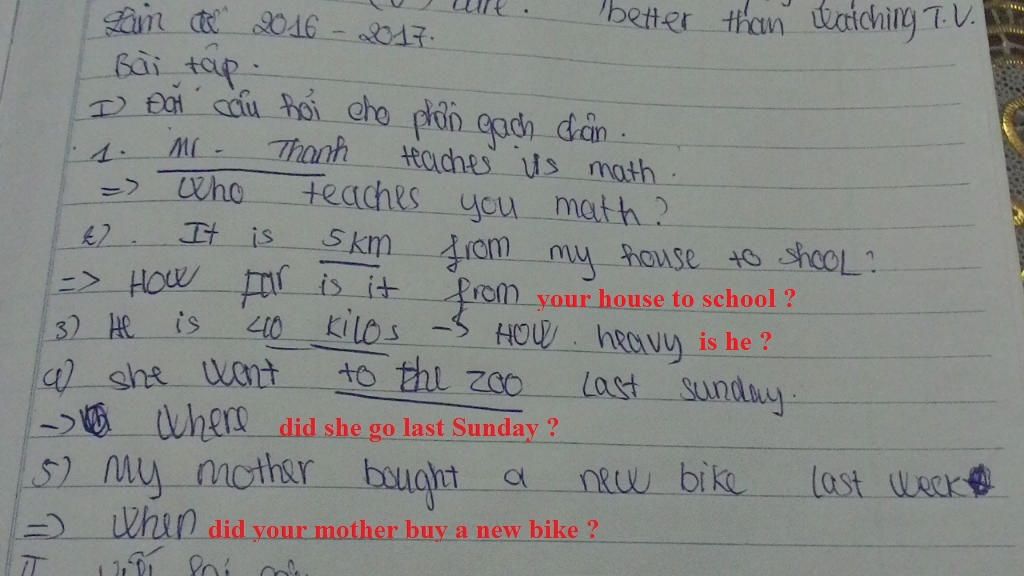 better than watching T.V.
năm 2016 - 2017.
Bài tập.
I) Đặt câu hỏi cho phần gạch chân.
1. Mr. Thanh teaches us math.
=> Who teaches you math?
2). It is 5km from my house to shool?
=> How far is it from your house to school ?
3) He is 40 kilos -> How heavy is he ?
4) she went to the zoo last sunday.
-> Where did she go last Sunday ?
5) My mother bought a new bike last week
=> When did your mother buy a new bike ?
II